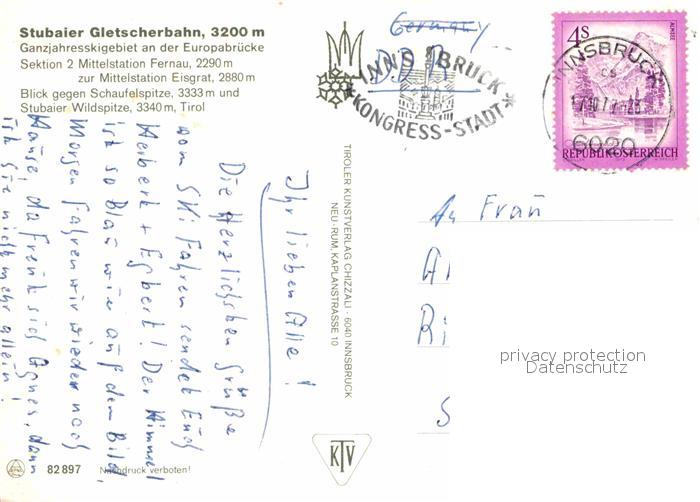 Stubaier Gletscherbahn, 3200 m
Ganzjahresskigebiet an der Europabrücke
Sektion 2 Mittelstation Fernau, 2290 m
zur Mittelstation Eisgrat, 2880 m
Blick gegen Schaufelspitze, 3333 m und
Stubaier Wildspitze, 3340 m, Tirol
Germany
DDR
INNSBRUCK
*KONGRESS-STADT*
4S
ALMSEE
REPUBLIK ÖSTERREICH
INNSBRUCK
6020
Ihr lieben Alle!
Die herzlichsten Grüße
vom Ski Fahren sendet Euch
Herbert + Egbert! Der Himmel
ist so Blau wie auf dem Bild,
Morgen fahren wir wieder nach
Hause, da freut sich Agnes, dann
ist sie nicht mehr allein!
TIROLER KUNSTVERLAG CHIZZALI · 6041 INNSBRUCK
NEU-RUM, KAPLANSTRASSE 10
An Frau
A
Ri
S
privacy protection
Datenschutz
KTV
82897 Nachdruck verboten!